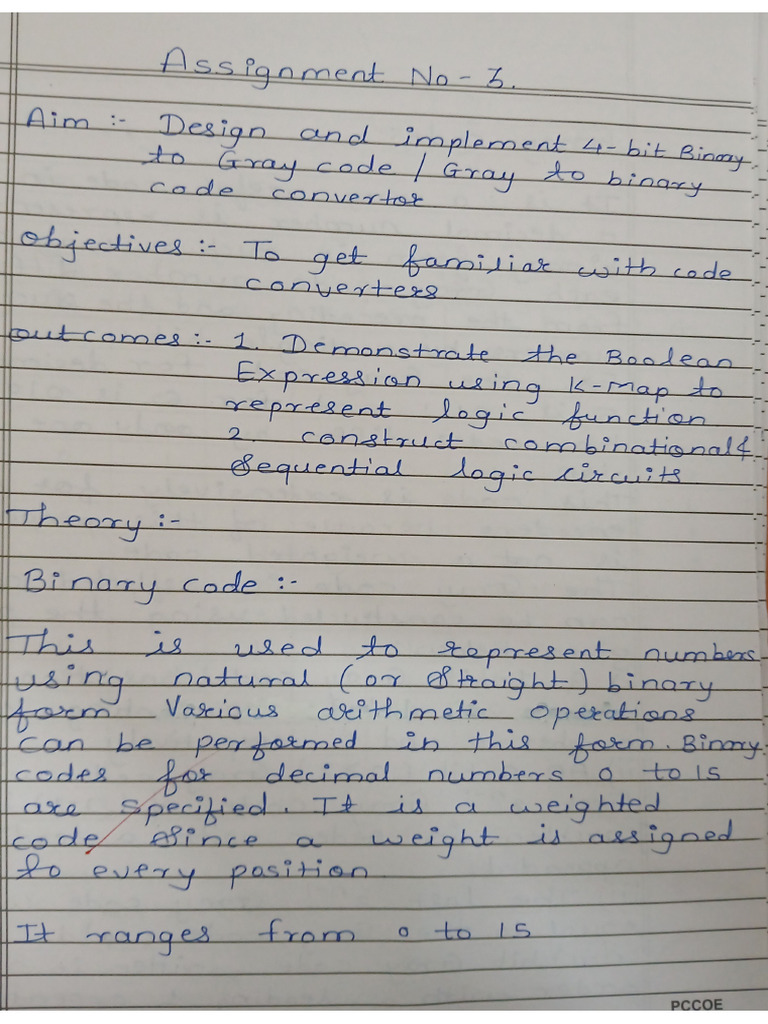 Assignment No - 3.
Aim :- Design and implement 4-bit Binary
to Gray code / Gray to binary
code convertor
Objectives :- To get familiar with code
converters
outcomes :- 1. Demonstrate the Boolean
Expression using K-Map to
represent logic function
2. construct combinational &
Sequential logic circuits
Theory :-
Binary code :-
This is used to represent numbers
using natural (or Straight) binary
form Various arithmetic operations
can be performed in this form. Binary
codes for decimal numbers 0 to 15
are specified. It is a weighted
code since a weight is assigned
to every position
It ranges from 0 to 15
PCCOE